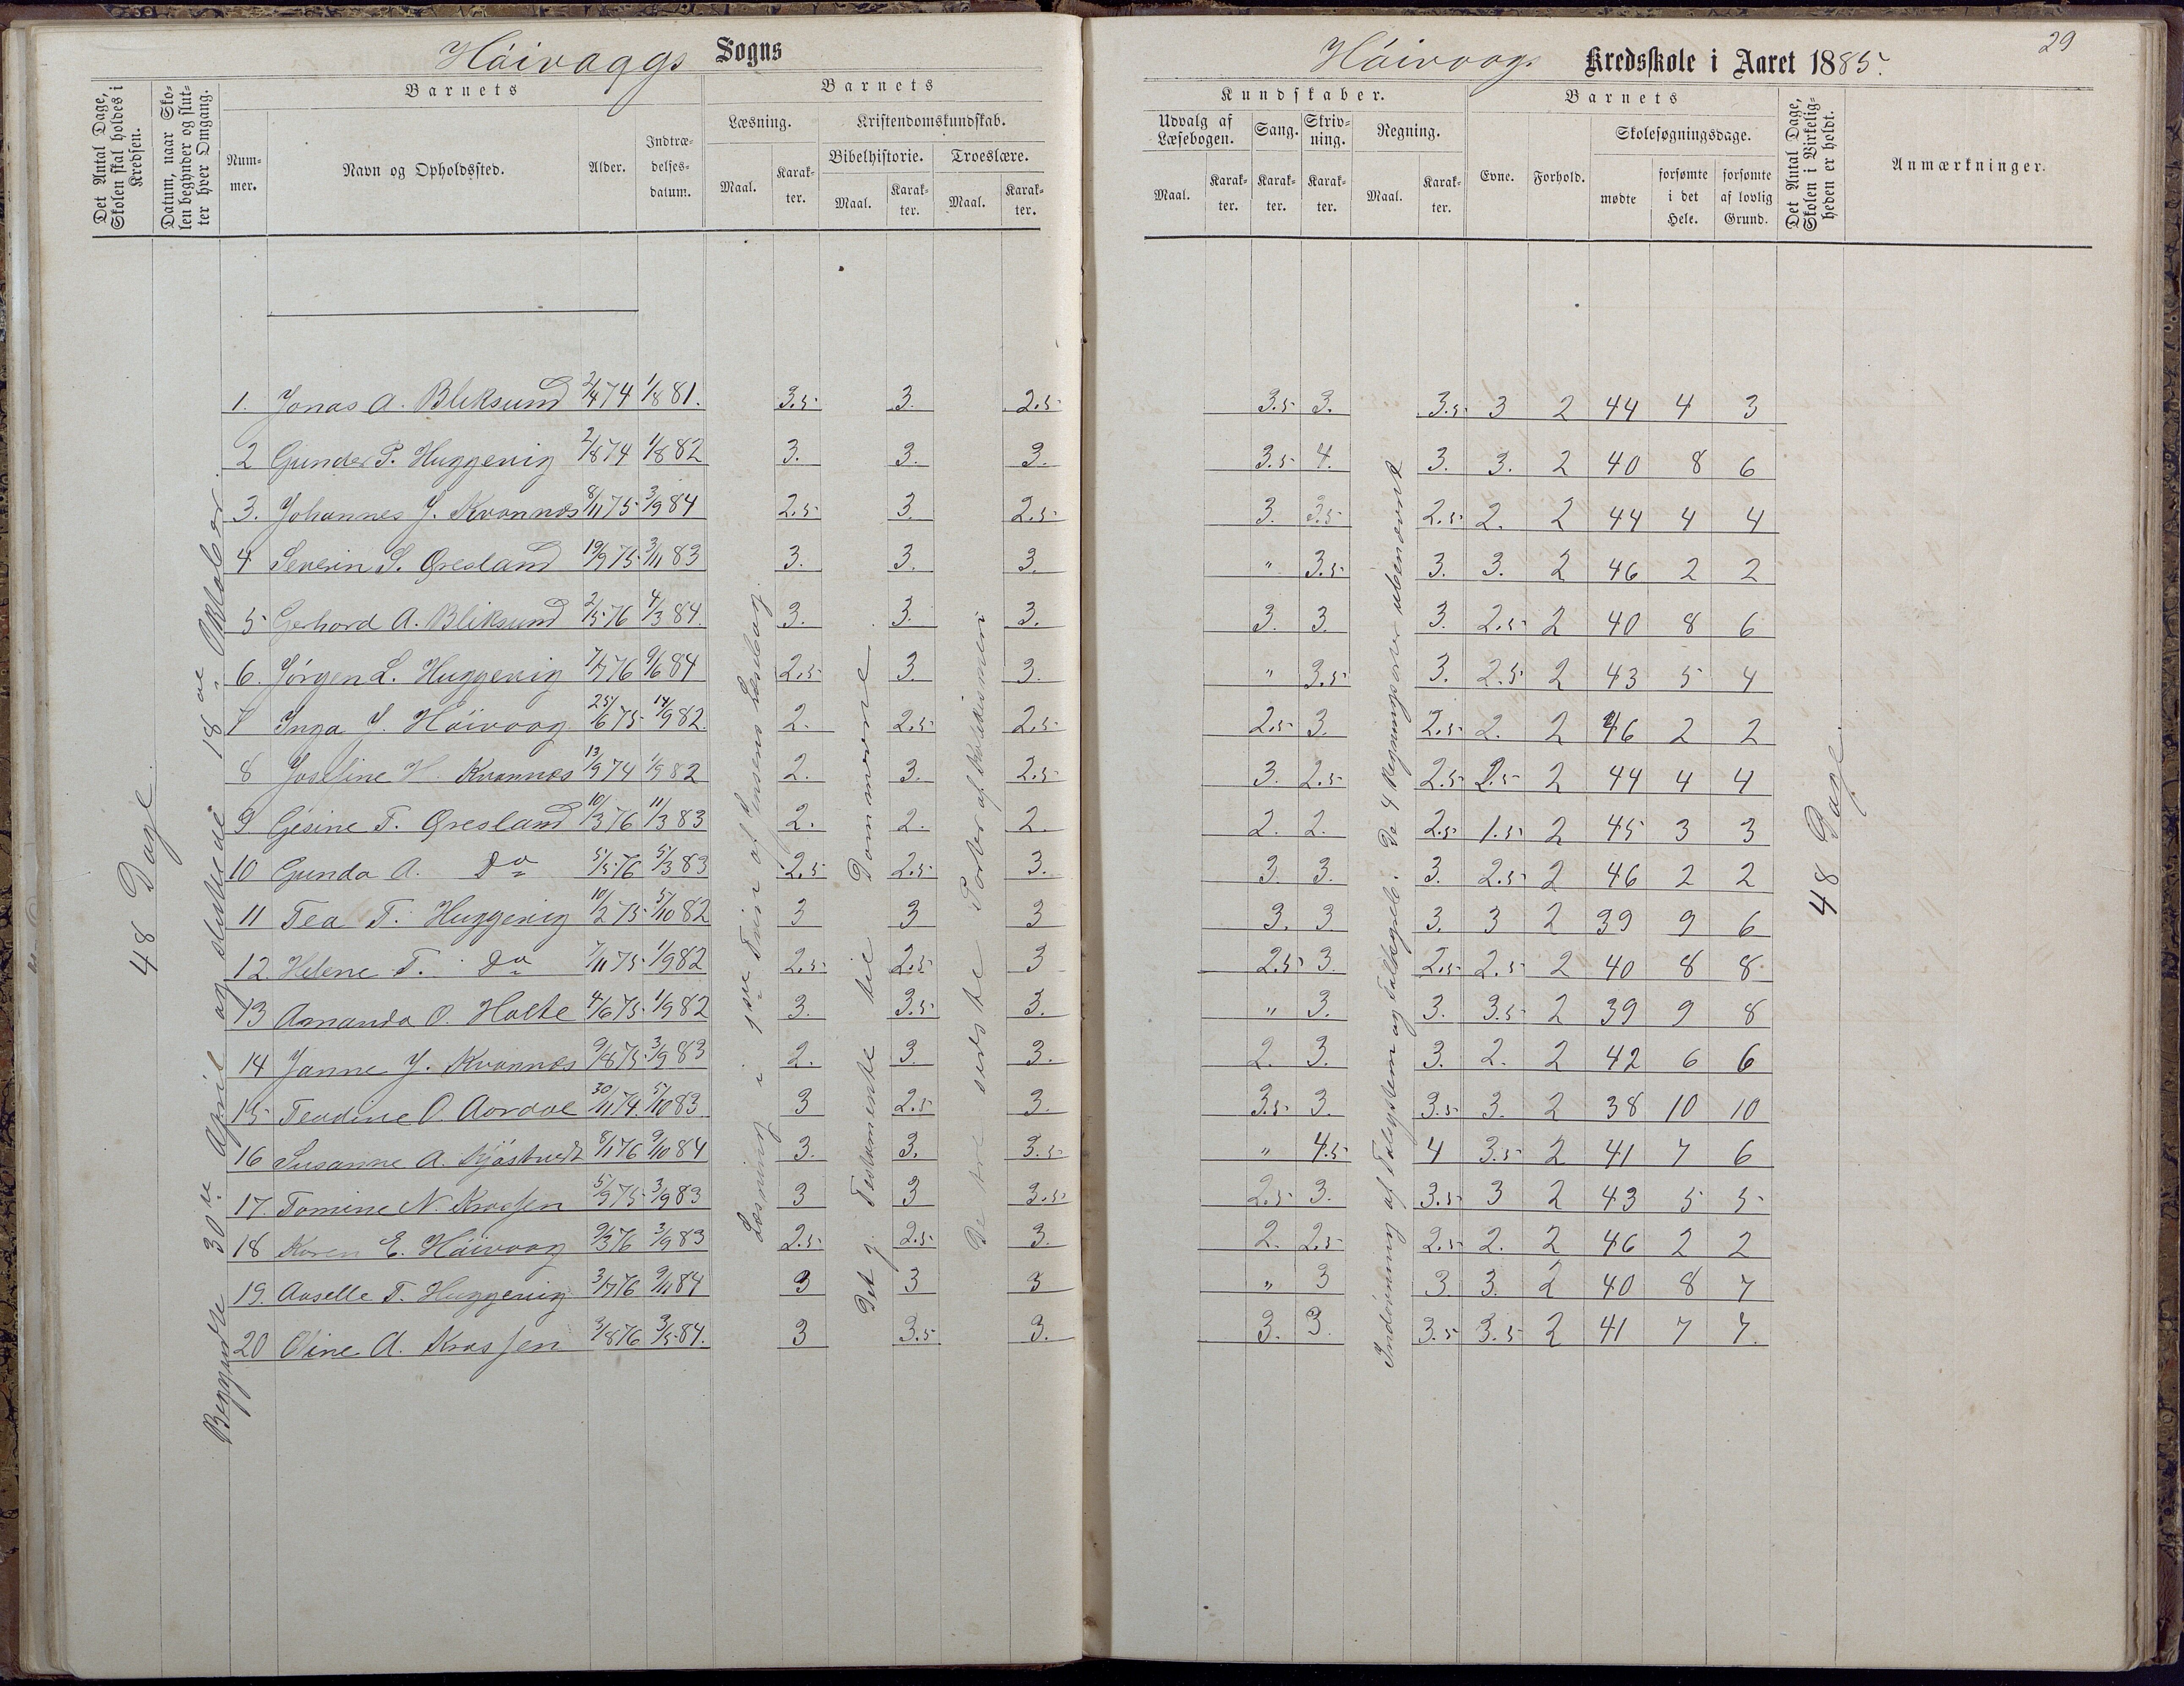 Háivaags Sogns
Det Antal Dage, Skolen skal holdes i Kredsen.
Datum, naar Skolen begynder og slutter hver Omgang.
Barnets
Nummer.
Navn og Opholdssted.
Alder.
Indtrædelsesdatum.
Barnets
Læsning.
Maal.
Karakter.
Kristendomskundskab.
Bibelhistorie.
Maal.
Karakter.
Troeslære.
Maal.
Karakter.
48 Dage.
Begyndte 30te April og sluttede 18de Oktober.
Læsning i 1ste Trin af Jensens Læsebog.
Det g. Testamente til Dommerne
De tre sidste Parter af Katekismen
1. Jonas A. Bliksund 2/4 74 1/8 81. 3.5 3. 2.5
2 Gunder P. Huggevig 2/8 74 1/8 82 3. 3. 3.
3. Johannes J. Kvannes 8/11 75 3/9 84 2.5 3. 2.5
4 Severin S. Øresland 19/9 75 3/11 83 3. 3. 3.
5 Gerhard A. Bliksund 2/5 76 4/3 84. 3. 3. 3.
6. Jørgen L. Huggevig 7/7 76 9/6 84 2.5 3. 3.
7 Inga J. Höivaag 25/6 75 14/9 82. 2. 2.5 2.5
8 Josefine H. Kvannes 13/9 74 1/9 82 2. 3. 2.5
9 Gesine T. Øresland 10/3 76 11/3 83 2. 2. 2.
10 Gunda A. Do 5/5 76 5/3 83 2.5 2.5 3.
11 Tea T. Huggevig 10/2 75 5/10 82 3 3 3
12. Helene T. Do 7/11 75 1/9 82 2.5 2.5 3
13 Amanda O. Holte 4/6 75 1/9 82 3. 3.5 3.
14 Janne J. Kvannes 9/8 75 3/9 83 2. 3. 3.
15 Teodine O. Aardal 30/11 74. 5/10 83. 3 2.5 3.
16 Susanne A. Kjøstvedt 8/1 76 9/10 84 3. 3. 3.5
17. Tomine N. Krossen 5/9 75 3/9 83 3 3 3.5
18 Karen E. Höivaag 9/3 76 3/9 83 2.5 2.5 3.
19. Aaselle T. Huggevig 3/7 76 9/11 84 3 3 3
20 Oline A. Krossen 3/8 76 3/5 84. 3 3.5 3.
29
Háivaags Kredsskole i Aaret 1885.
Kundskaber.
Udvalg af Læsebogen.
Maal.
Karakter.
Sang.
Karakter.
Skrivning.
Karakter.
Regning.
Maal.
Karakter.
Barnets
Evne.
Forhold.
Skolesøgningsdage.
mødte
forsømte i det Hele.
forsømte af lovlig Grund.
Det Antal Dage, Skolen i Virkeligheden er holdt.
Anmærkninger.
Indøvning af Talsystem og Talbegreb. De 4 Regningsarter ubenævnt
48 Dage.
3.5 3. 3.5 3 2 44 4 3
3.5 4. 3. 3. 2 40 8 6
3. 3.5 2.5 2. 2 44 4 4
" 3.5 3. 3. 2 46 2 2
3. 3. 3. 2.5 2 40 8 6
" 3.5 3. 2.5 2 43 5 4
2.5 3. 2.5 2. 2 46 2 2
3. 2.5 2.5 2.5 2 44 4 4
2. 2. 2.5 1.5 2 45 3 3
3. 3. 3. 2.5 2 46 2 2
3. 3. 3. 3 2 39 9 6
2.5 3. 2.5 2.5 2 40 8 8
" 3. 3. 3.5 2 39 9 8
2. 3. 3. 2. 2 42 6 6
3.5 3. 3.5 3. 2 38 10 10
" 4.5 4 3.5 2 41 7 6
2.5 3. 3.5 3 2 43 5 5
2. 2.5 2.5 2. 2 46 2 2
" 3 3. 3. 2 40 8 7
3. 3. 3.5 3.5 2 41 7 7.